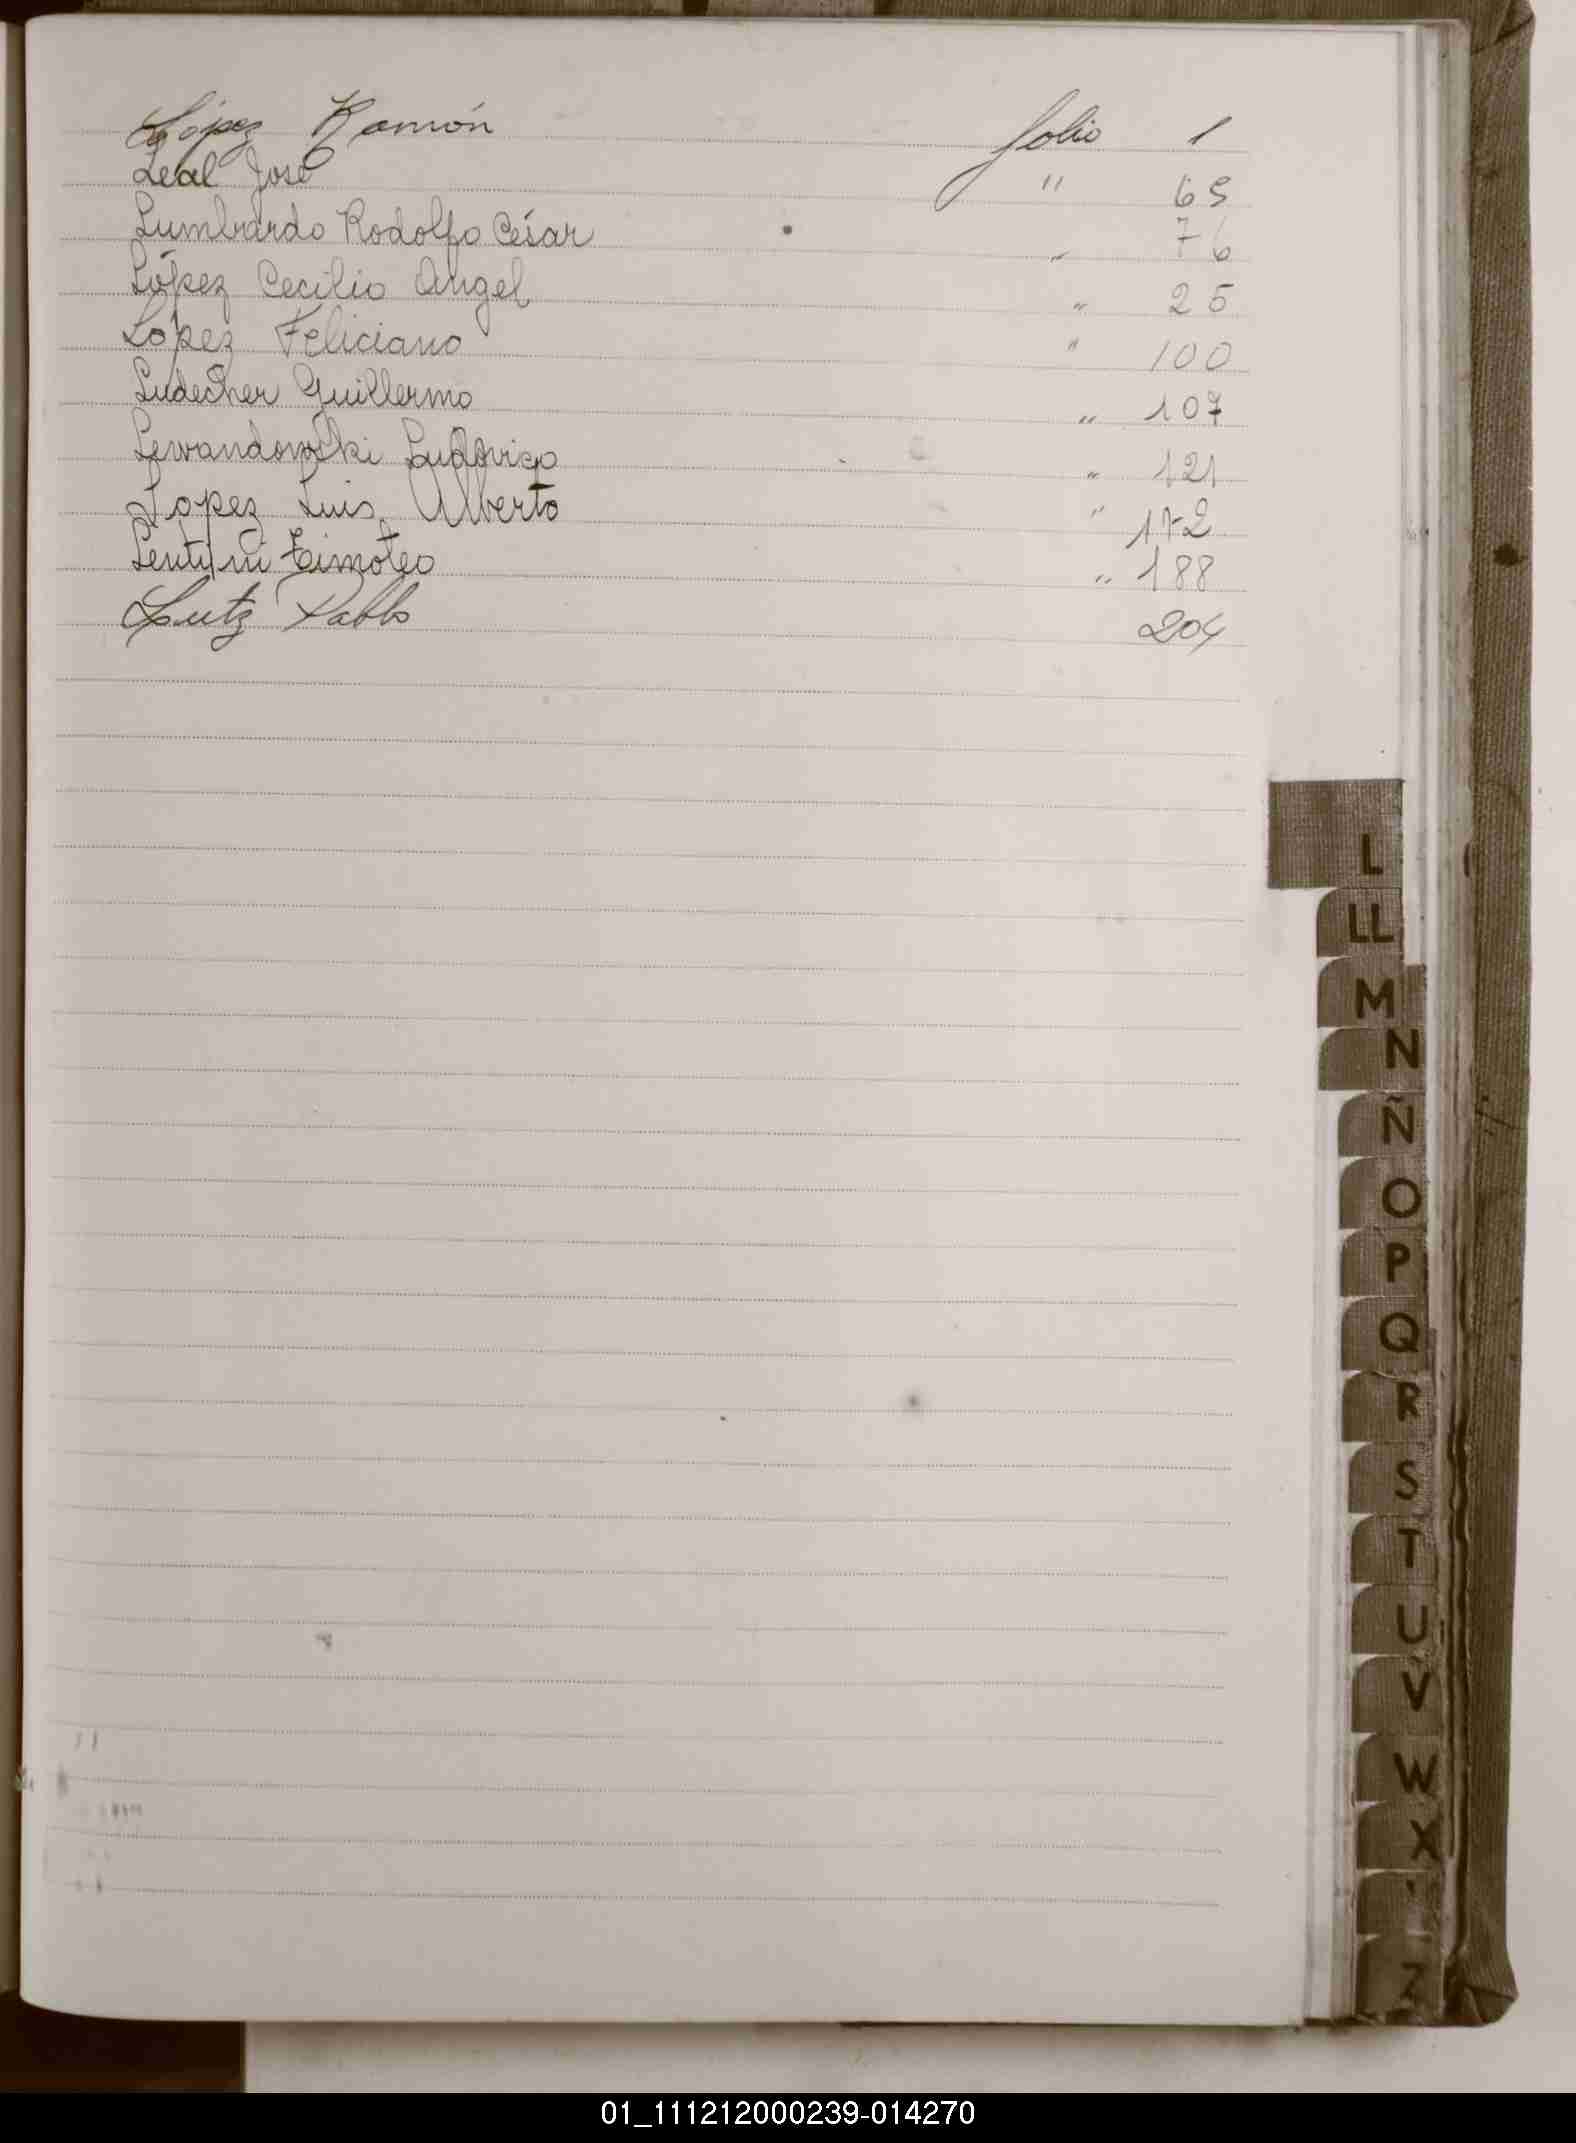 López Ramón folio 1
Leal José " 65
Lumbardo Rodolfo César " 76
López Cecilio Angel " 25
López Feliciano " 100
Ludecher Guillermo " 107
Lewandowski Ludovico " 121
Lopez Luis Alberto " 172
Lentini Timoteo " 188
Lutz Pablo 204
L
LL
M
N
Ñ
O
P
Q
R
S
T
U
V
W
X
Z
01_111212000239-014270